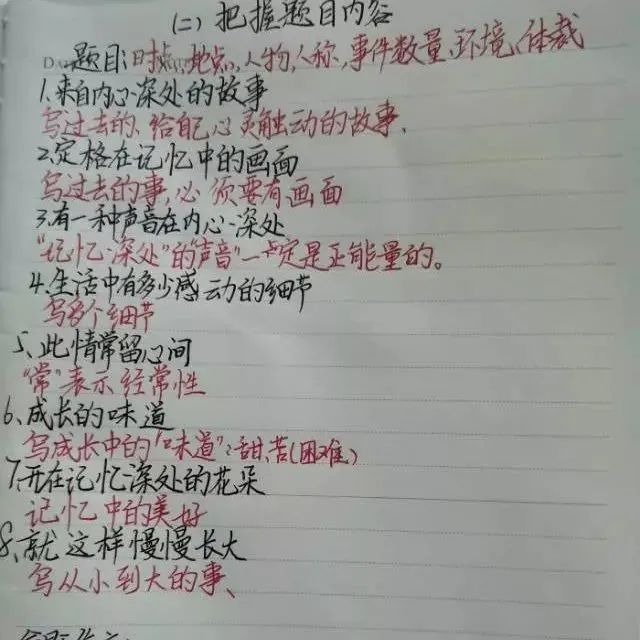 (二)把握题目内容
题目:时点,地点,人物,人称,事件数量、环境、体裁
1.来自内心深处的故事
写过去的、给自己心灵触动的故事、
2.定格在记忆中的画面
写过去的事,必须要有画面
3.有一种声音在内心深处
"记忆深处"的声音"一定是正能量的。
4.生活中有多少感动的细节
写多个细节
5、此情常留心间
"常"表示经常性
6、成长的味道
写成长中的"味道":甜、苦(困难)
7.开在记忆深处的花朵
记忆中的美好
8、就这样慢慢长大
写从小到大的事、